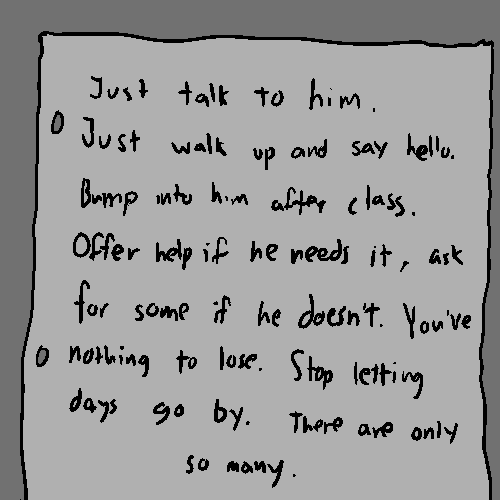 Just talk to him.
Just walk up and say hello.
Bump into him after class.
Offer help if he needs it, ask
for some if he doesn't. You've
nothing to lose. Stop letting
days go by. There are only
so many.